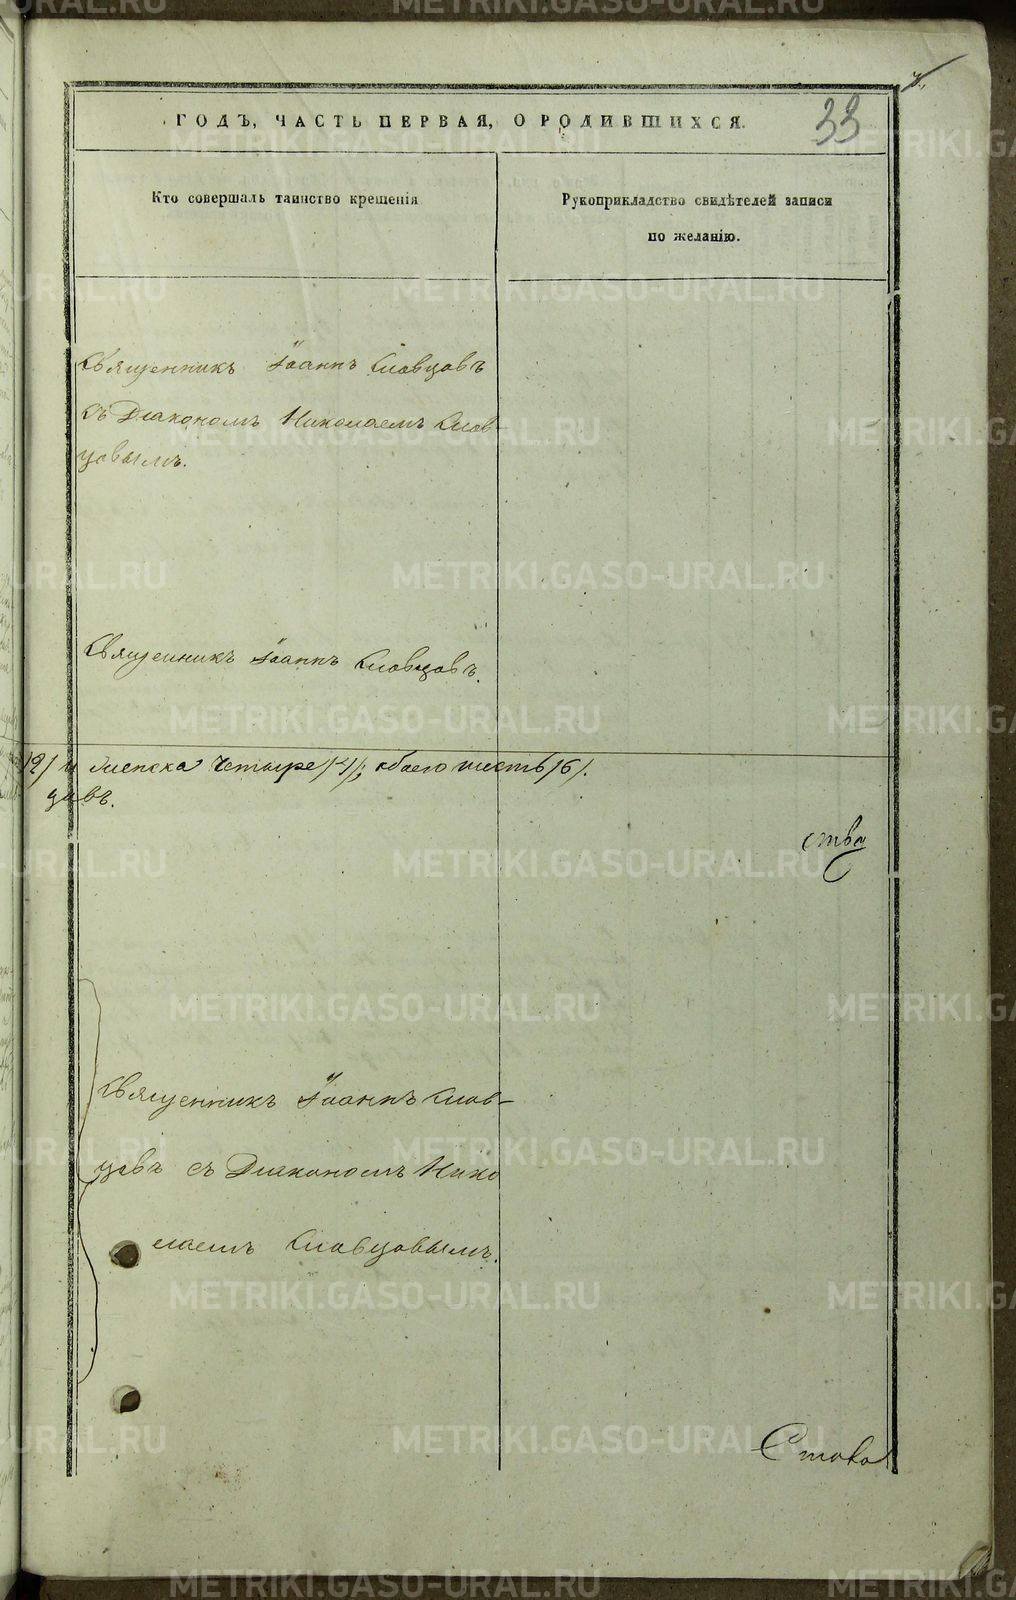 ГОДЪ, ЧАСТЬ ПЕРВАЯ, О РОДИВШИХСЯ.
33
Кто совершалъ таинство крещенія
Рукоприкладство свидѣтелей записи
по желанію.
Священникъ Іоаннъ Словцовъ
съ Діакономъ Николаемъ Слов-
цовымъ.
Священникъ Іоаннъ Словцовъ.
/2/ и женска четыре /4/; обоего шесть /6/.
ства
Священникъ Іоаннъ Слов-
цовъ съ Діакономъ Нико
лаемъ Словцовымъ.
METRIKI.GASO-URAL.RU